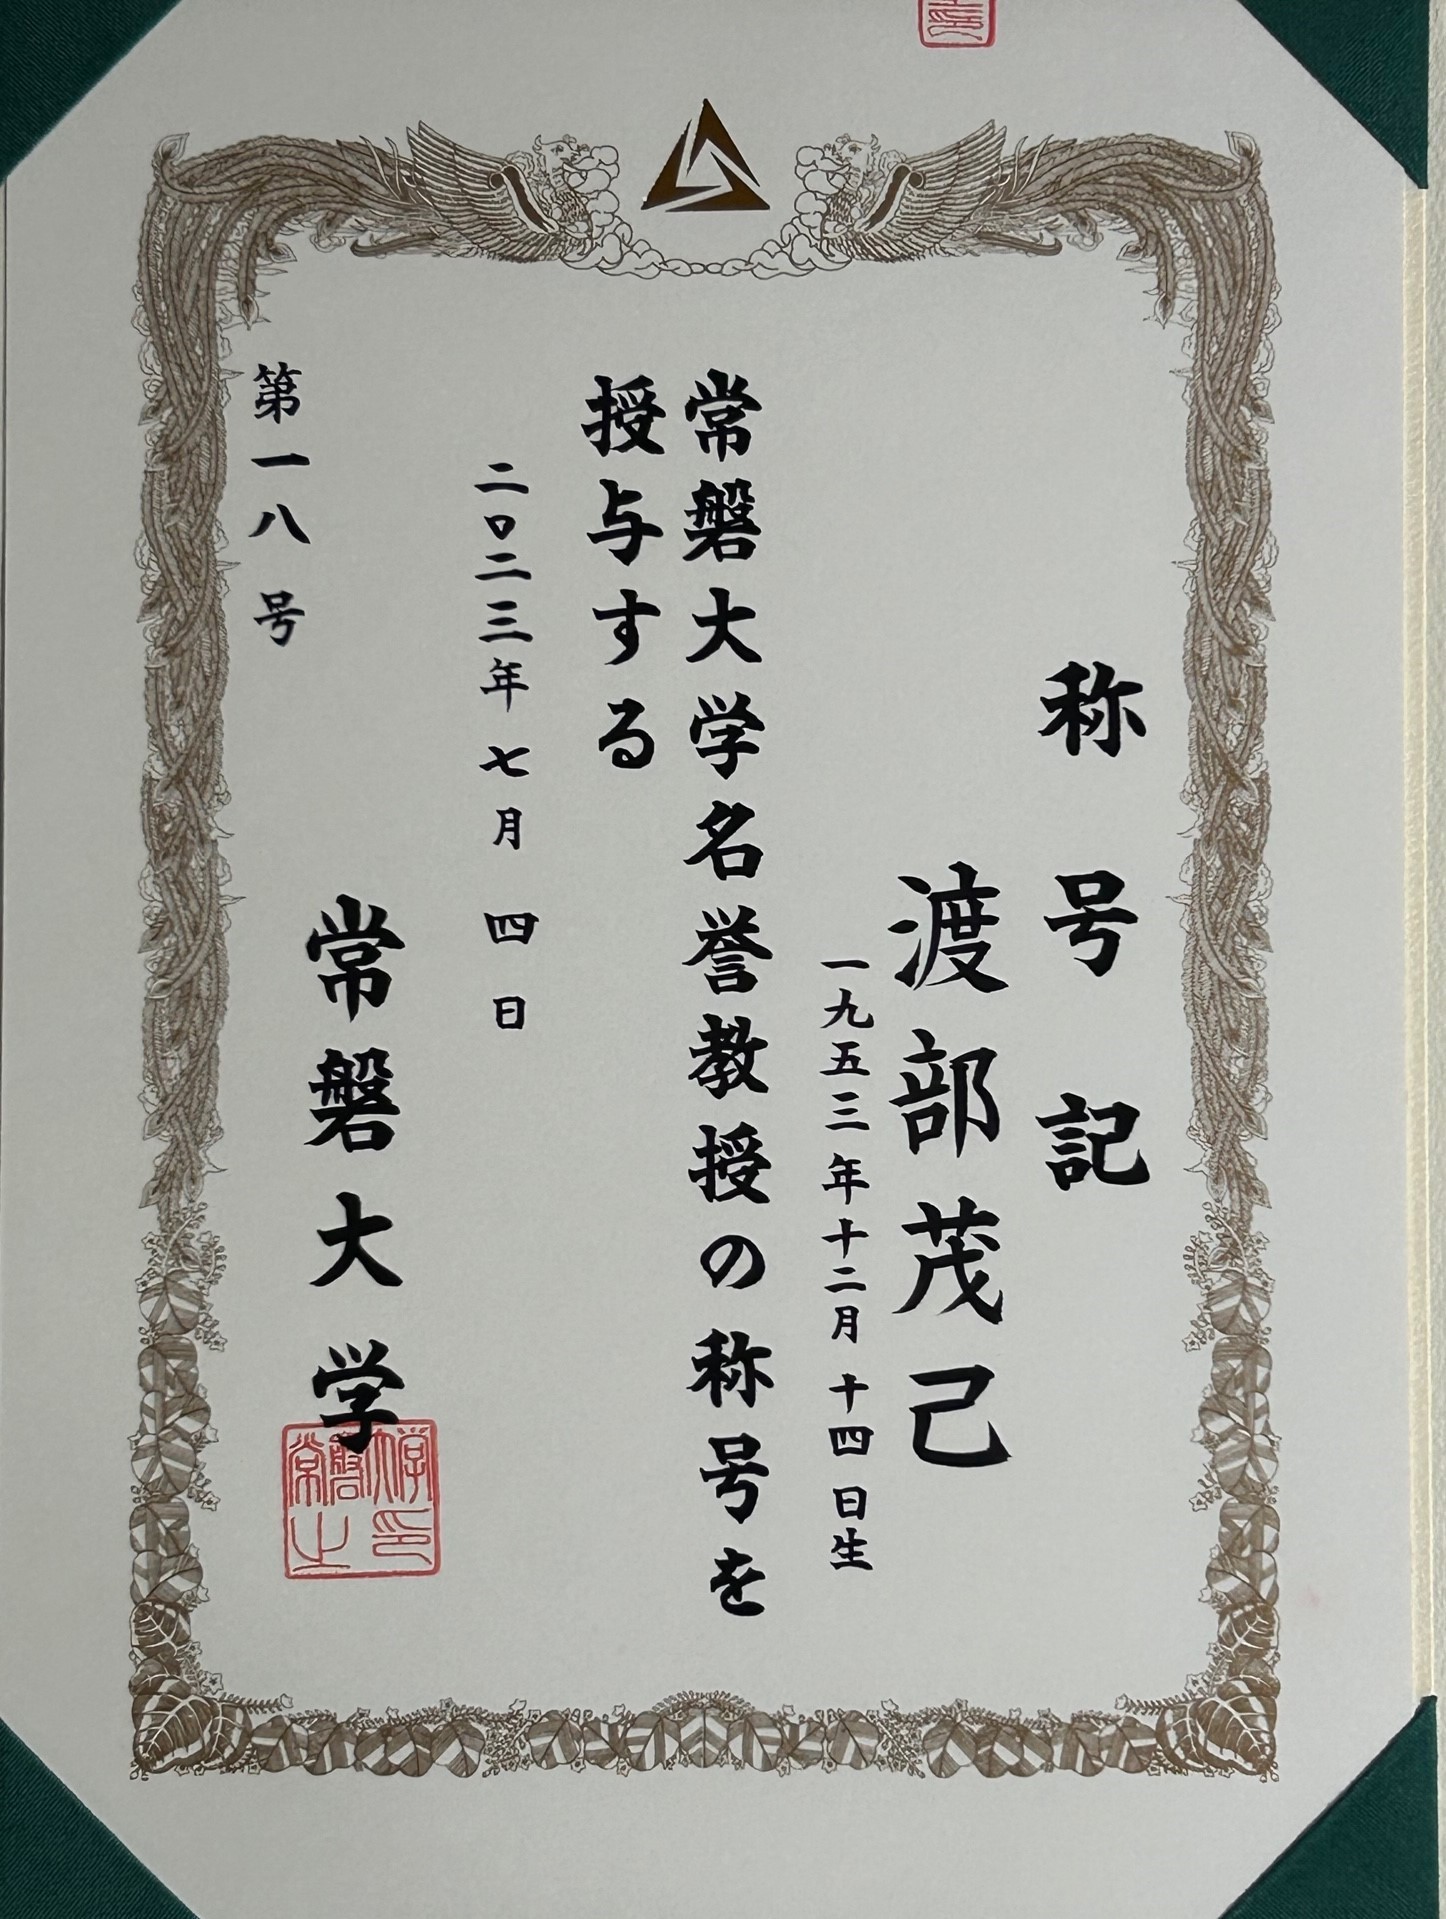 称号記
渡部茂己
一九五三年十二月十四日生
常磐大学名誉教授の称号を
授与する
二〇二三年七月四日
常磐大学
常磐大学之印
第一八号